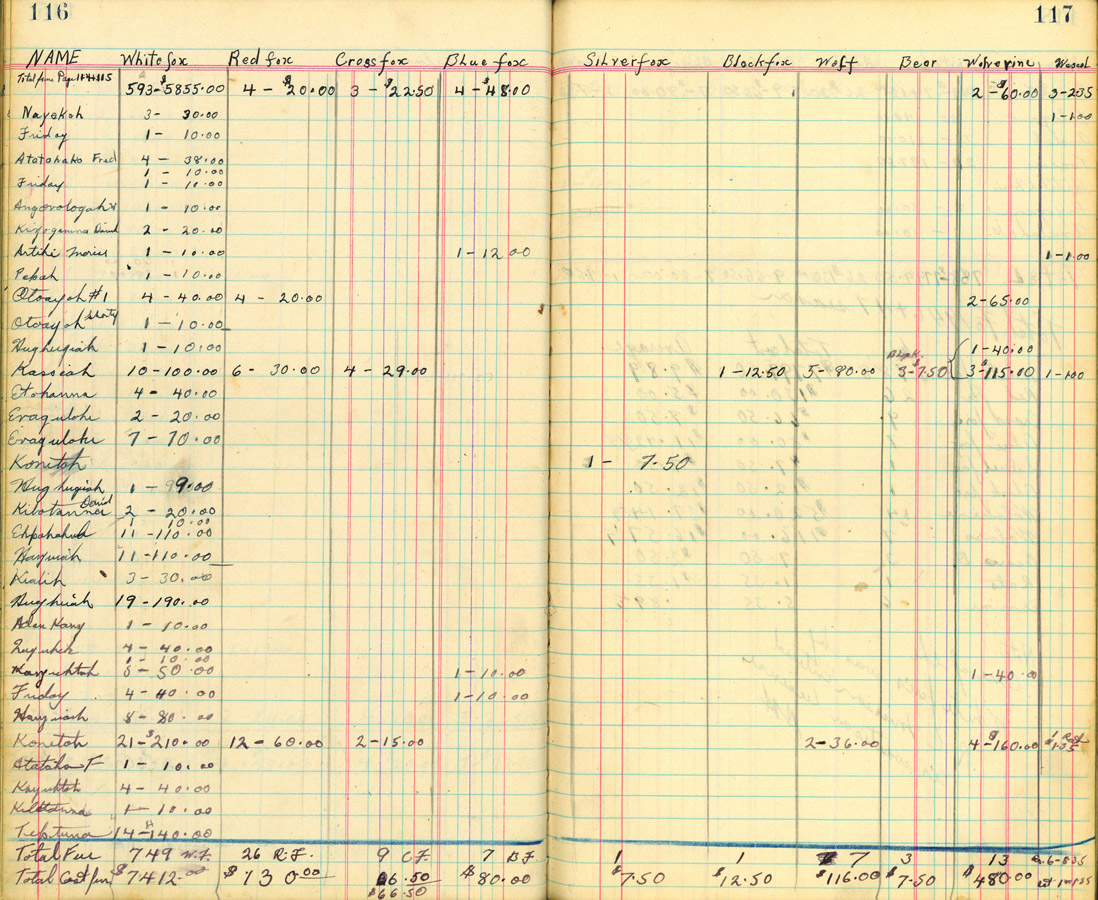 116
117
NAME Whitefox Red fox Crossfox Blue fox Silverfox Blackfox Wolf Bear Wolverine Weasel
Total furs Page 114+115 593-$5855.00 4 - $20.00 3 - $22.50 4 - $48.00 2 - $60.00 3-2.35
Nayakoh 3- 30.00 1-1.00
Friday 1- 10.00
Atatohako Fred 4 - 38.00
1 - 10.00
Friday 1 - 10.00
1 - 10.00
2 - 20.00
1 - 10.00 1-12 00 1-1.00
Pekoh 1-10.00
Otoayoh #1 4 - 40.00 4 - 20.00 2-65.00
Otoayoh Shorty 1-10.00
Hughugiah 1-10.00 1-40.00
Kassiah 10-100.00 6 - 30.00 4 - 29.00 1-12.50 5-80.00 3-7.50 3-$115.00 1-1.00
Etohanna 4- 40.00
Evaguloke 2-20.00
Evaguloke 7-70.00
Konitoh 1- 7.50
Hughugiah 1 - 99.00
Kibotanna David 2 - 20.00
1 10.00
11 -110.00
Hayuiah 11-110.00
Kialih 3-30.00
Hughuiah 19-190.00
Aden Kany 1-10.00
4-40.00
1-10.00
Kayuktoh 5-50.00 1-10.00 1-40.00
Friday 4-40.00 1-10.00
Hayuiah 8-80.00
Konitoh 21-$210.00 12-60.00 2-15.00 2-36.00 4-$160.00
Atatoha F 1- 10.00
Kayuktoh 4-40.00
1- 10.00
14-140.00
Total Fur 749 W.F. 26 R.F. 9 C.F. 7 B.F. 1 1 7 3 13
Total Cost fur $7412.00 $130.00 66.50 $80.00 $7.50 $12.50 $116.00 $7.50 $480.00
$66.50